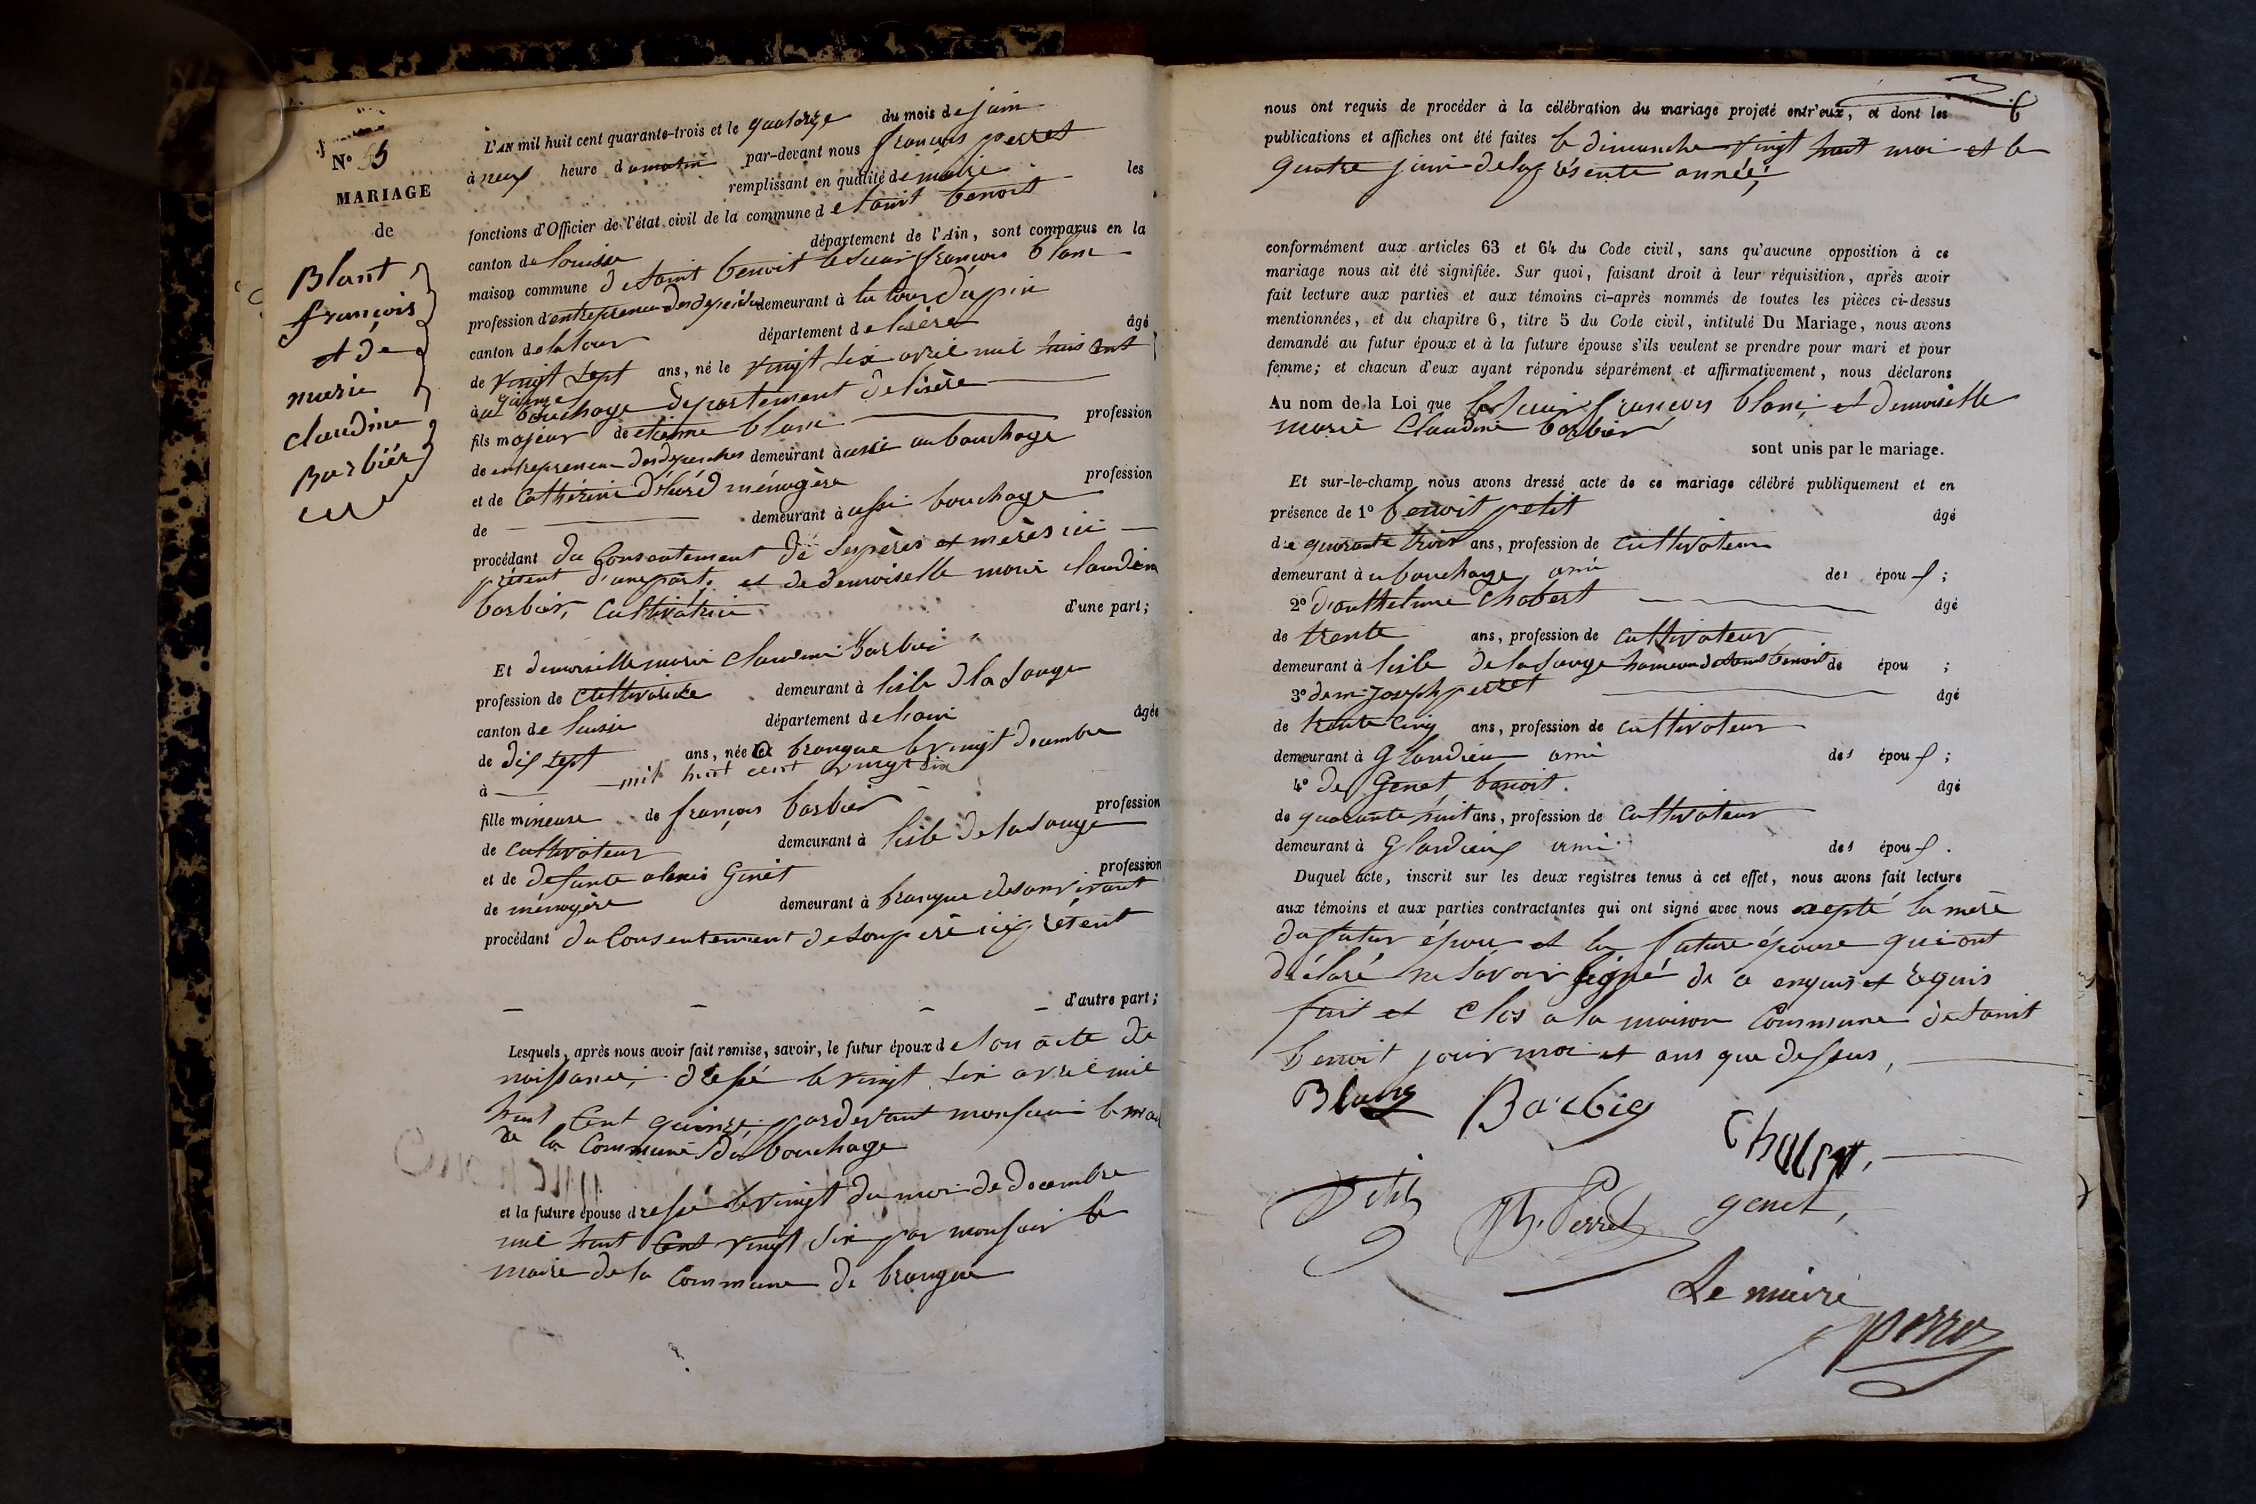 N° 5
MARIAGE
de
Blant
françois
et de
marie
claudine
Barbiér
L'AN mil huit cent quarante-trois et le quatorze du mois de juin
à neuf heure du matin par-devant nous françois perret
remplissant en qualité de maire les
fonctions d'Officier de l'état civil de la commune de saint benoit
canton de département de l'Ain, sont comparus en la
maison commune de saint benoit le sieur françois blanc
profession d'entrepreneur des depeches demeurant à la tour dupin
canton de latour département de lisère âgé
de vingt sept ans, né le vingt six avril mil huit cent
quinze
au bouchage département de lisère
fils majeur de etienne blanc profession
de entrepreneur des depeches demeurant à aussi au bouchage
et de Cathérine ménagère profession
de demeurant à aussi bouchage
procédant du Consentement de ses pères et mères ici
présent d'une part, et de demoiselle marie claudine
barbier, Cultivatrice d'une part;
Et demoiselle marie claudine Barbier
profession de cultivatrice demeurant à lisle de la sauge
canton de département de lain âgée
de dix sept ans, née à brangue le vingt decembre
à mil huit cent vingt six
fille mineure de françois barbier profession
de cultivateur demeurant à lisle de la sauge
et de defunte alexis Ginet profession
de ménagère demeurant à brangue de son vivant
procédant du Consentement de son père ici présent
d'autre part;
Lesquels, après nous avoir fait remise, savoir, le futur époux de son acte de
naissance, dressé le vingt six avril mil
huit Cent quinze, pardevant monsieur le maire
de la Commune du bouchage
et la future épouse dressé le vingt du moi de decembre
mil huit Cent vingt six par monsieur le
maire de la Commune de brangue
6
nous ont requis de procéder à la célébration du mariage projeté entr'eux, et dont les
publications et affiches ont été faites le dimanche vingt huit mai et le
quatre juin de la présente année;
conformément aux articles 63 et 64 du Code civil, sans qu'aucune opposition à ce
mariage nous ait été signifiée. Sur quoi, faisant droit à leur réquisition, après avoir
fait lecture aux parties et aux témoins ci-après nommés de toutes les pièces ci-dessus
mentionnées, et du chapitre 6, titre 5 du Code civil, intitulé Du Mariage, nous avons
demandé au futur époux et à la future épouse s'ils veulent se prendre pour mari et pour
femme; et chacun d'eux ayant répondu séparément et affirmativement, nous déclarons
Au nom de la Loi que le sieur françois blanc et demoiselle
marie Claudine barbier
sont unis par le mariage.
Et sur-le-champ nous avons dressé acte de ce mariage célébré publiquement et en
présence de 1° benoit petit âgé
de quarante trois ans, profession de cultivateur
demeurant à u bouchage ami des épou x;
2° d'anthelme Chabert âgé
de trente ans, profession de cultivateur
demeurant à lisle de la sauge hameau de saint benoit de épou ;
3° de m. Joseph perret âgé
de trente cinq ans, profession de cultivateur
demeurant à Glandieu ami des épou x;
4° de Genet benoit. âgé
de quarante huit ans, profession de cultivateur
demeurant à Glandieux ami des épou x.
Duquel acte, inscrit sur les deux registres tenus à cet effet, nous avons fait lecture
aux témoins et aux parties contractantes qui ont signé avec nous excepté la mère
du futur époux et la future épouse qui ont
déclaré ne savoir signé de ce enquis et requis
fait et clos a la maison Commune de saint
benoit jour moi et ans que dessus,
Blanc Barbier
Chabert,
Petit Jh. Perret genet,
Le maire
perret